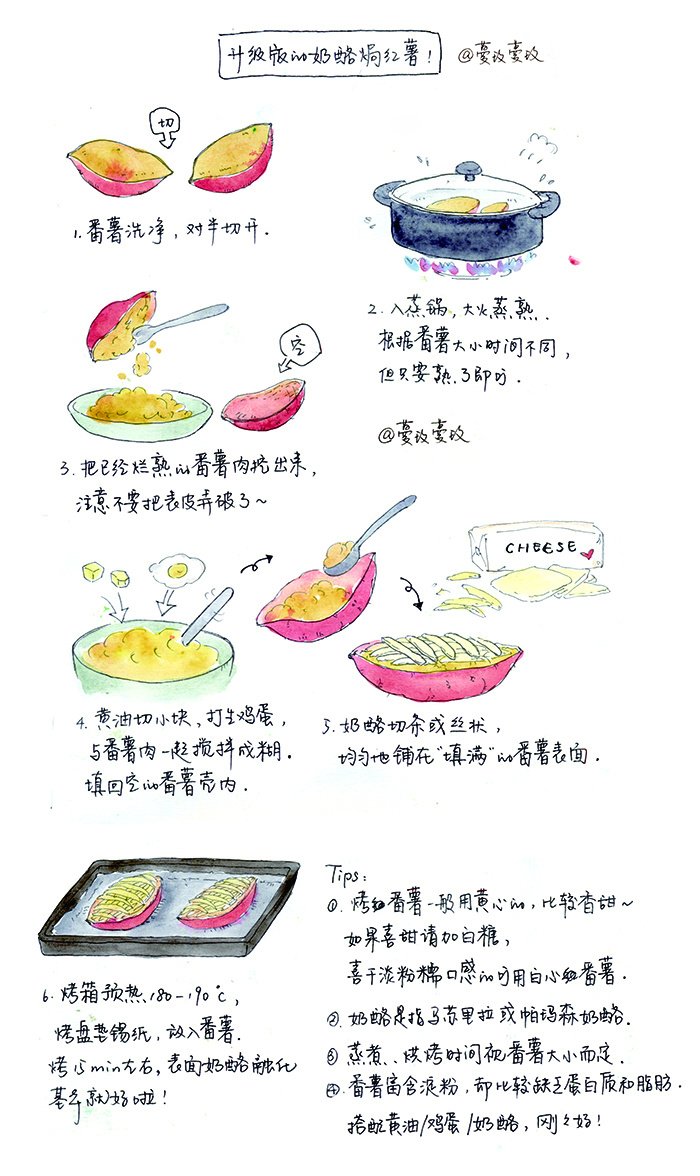 升级版的奶酪焗红薯！
切
1. 番薯洗净，对半切开.
2. 入蒸锅，大火蒸熟.
根据番薯大小时间不同，
但只要熟了即可.
空
3. 把已经烂熟的番薯肉挖出来，
注意不要把表皮弄破了~
CHEESE
4. 黄油切小块，打生鸡蛋，
与番薯肉一起搅拌成糊.
填回空的番薯壳内.
5. 奶酪切条或丝状，
均匀地铺在“填满”的番薯表面.
6. 烤箱预热180-190℃，
烤盘垫锡纸，放入番薯.
烤15min左右，表面奶酪融化
基本就好啦！
Tips:
①. 烤红番薯一般用黄心的，比较香甜~
如果喜甜请加白糖，
喜干淡粉糯口感的可用白心红番薯.
②. 奶酪是指马苏里拉或帕玛森奶酪.
③ 蒸煮、烘烤时间视番薯大小而定.
④. 番薯富含淀粉，却比较缺乏蛋白质和脂肪.
搭配黄油/鸡蛋/奶酪，刚刚好！